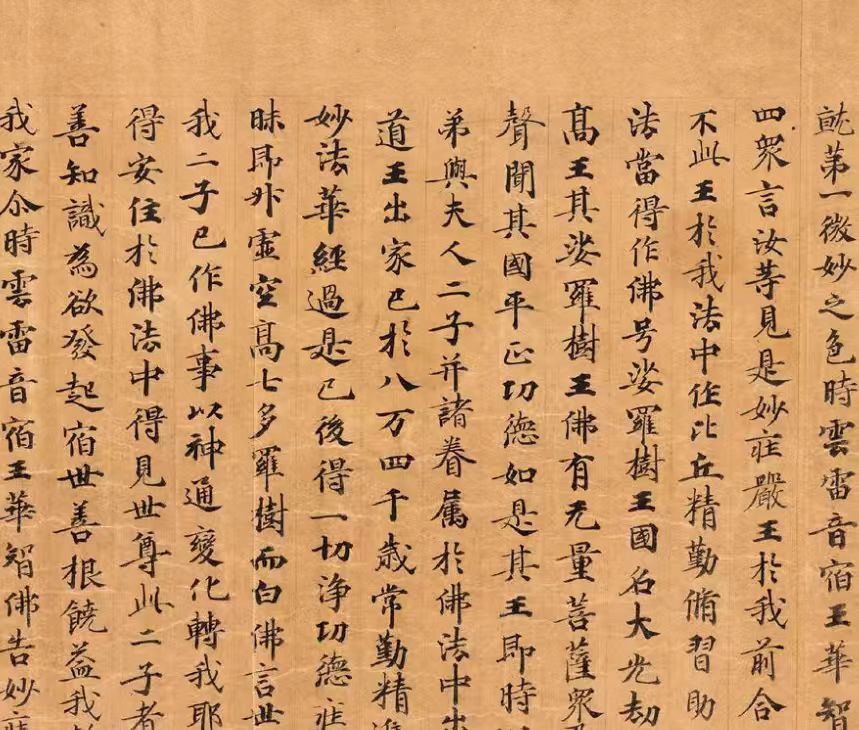 就第一微妙之色時雲雷音宿王華智
四眾言汝等見是妙莊嚴王於我前合
不此王於我法中作比丘精勤脩習助
法當得作佛号娑羅樹王國名大光劫
高王其娑羅樹王佛有无量菩薩眾
聲聞其國平正功德如是其王即時
弟與夫人二子并諸眷属於佛法中出
道王出家已於八万四千歲常勤精進
妙法華經過是已後得一切淨功德莊
昧即升虛空高七多羅樹而白佛言世
我二子已作佛事以神通變化轉我耶
得安住於佛法中得見世尊此二子者
善知識為欲發起宿世善根饒益我
我家尒時雲雷音宿王華智佛告妙莊